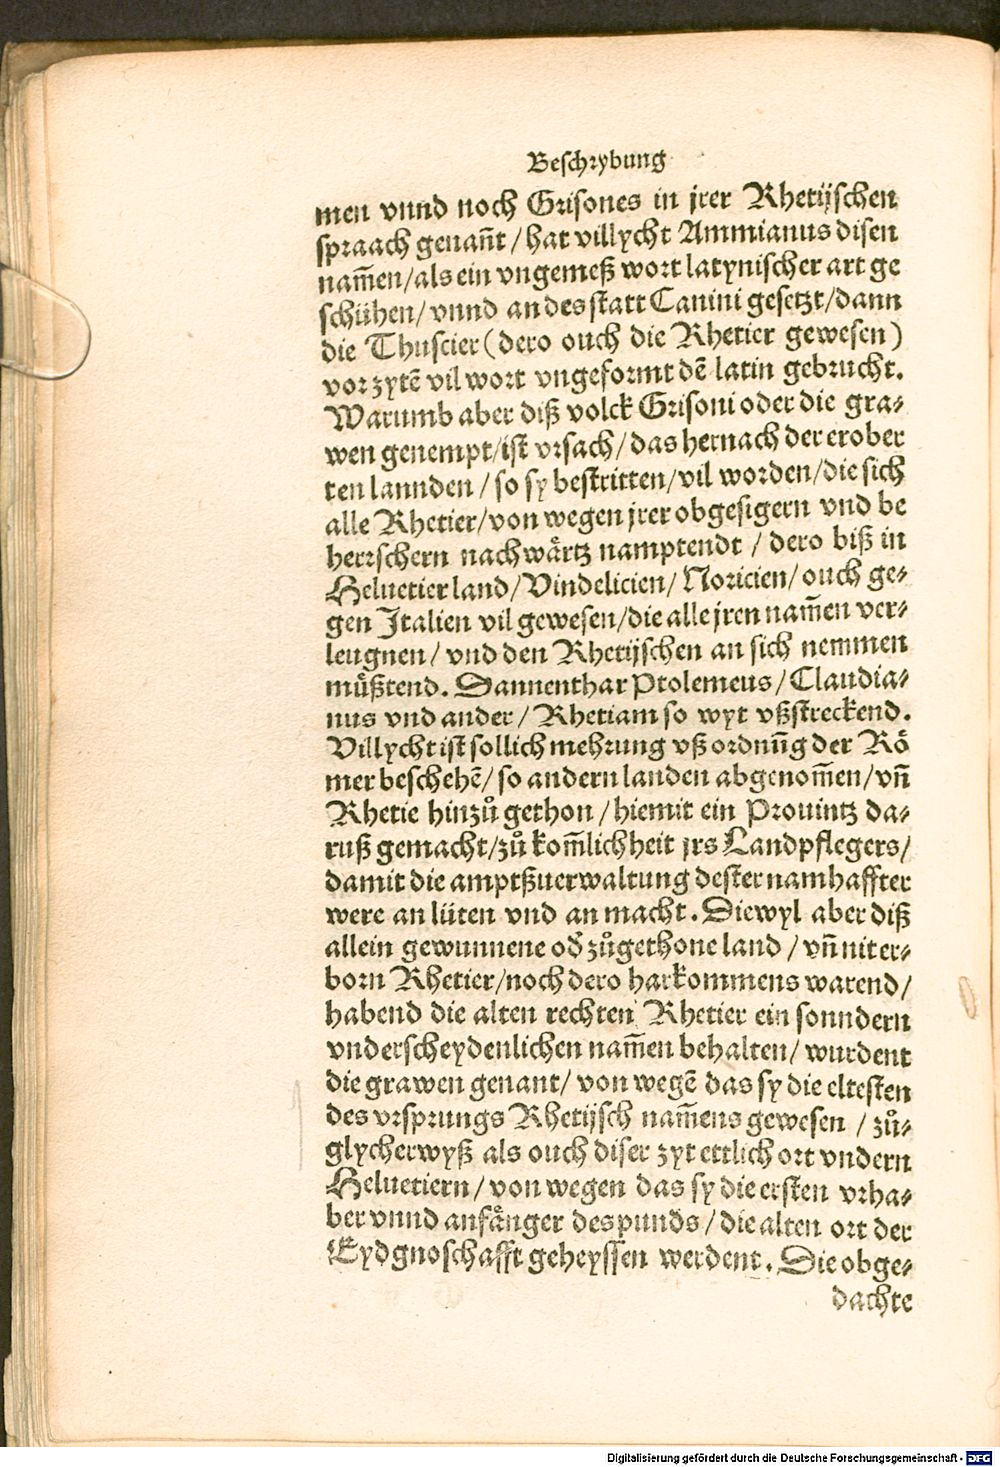 Beschrybung
men vnnd noch Grisones in jrer Rhetijschen
spraach genañt / hat villycht Ammianus disen
nam̃en / als ein vngemeß wort latynischer art ge
schühen / vnnd an des statt Canini gesetzt / dann
die Thuscier (dero ouch die Rhetier gewesen)
vor zytẽ vil wort vngeformt dẽ latin gebrucht.
Warumb aber diß volck Grisoni oder die gra⸗
wen genempt / ist vrsach / das hernach der erober
ten lannden / so sy bestritten / vil worden / die sich
alle Rhetier / von wegen jrer obgesigern vnd be
herrschern nachwårtz namptendt / dero biß in
Heluetier land / Vindelicien / Noricien / ouch ge⸗
gen Italien vil gewesen / die alle jren nam̃en ver⸗
leugnen / vnd den Rhetijschen an sich nemmen
můßtend. Dannenthar Ptolemeus / Claudia⸗
nus vnd ander / Rhetiam so wyt vßstreckend.
Villycht ist sollich mehrung vß ordnũg der Rö
mer beschehẽ / so andern landen abgenom̃en / vñ
Rhetie hinzů gethon / hiemit ein Prouintz da⸗
ruß gemacht / zů kom̃lichheit jrs Landpflegers /
damit die amptßuerwaltung dester namhaffter
were an lüten vnd an macht. Diewyl aber diß
allein gewunnene od̃ zůgethone land / vñ nit er⸗
born Rhetier / noch dero harkommens warend /
habend die alten rechten Rhetier ein sonndern
vnderscheydenlichen nam̃en behalten / wurdent
die grawen genant / von wegẽ das sy die eltesten
des vrsprungs Rhetijsch nam̃ens gewesen / zů⸗
glycherwyß als ouch diser zyt ettlich ort vndern
Heluetiern / von wegen das sy die ersten vrha⸗
ber vnnd anfånger des punds / die alten ort der
Eydgnoschafft geheyssen werdent. Die obge⸗
dachte
Digitalisierung gefördert durch die Deutsche Forschungsgemeinschaft - DFG